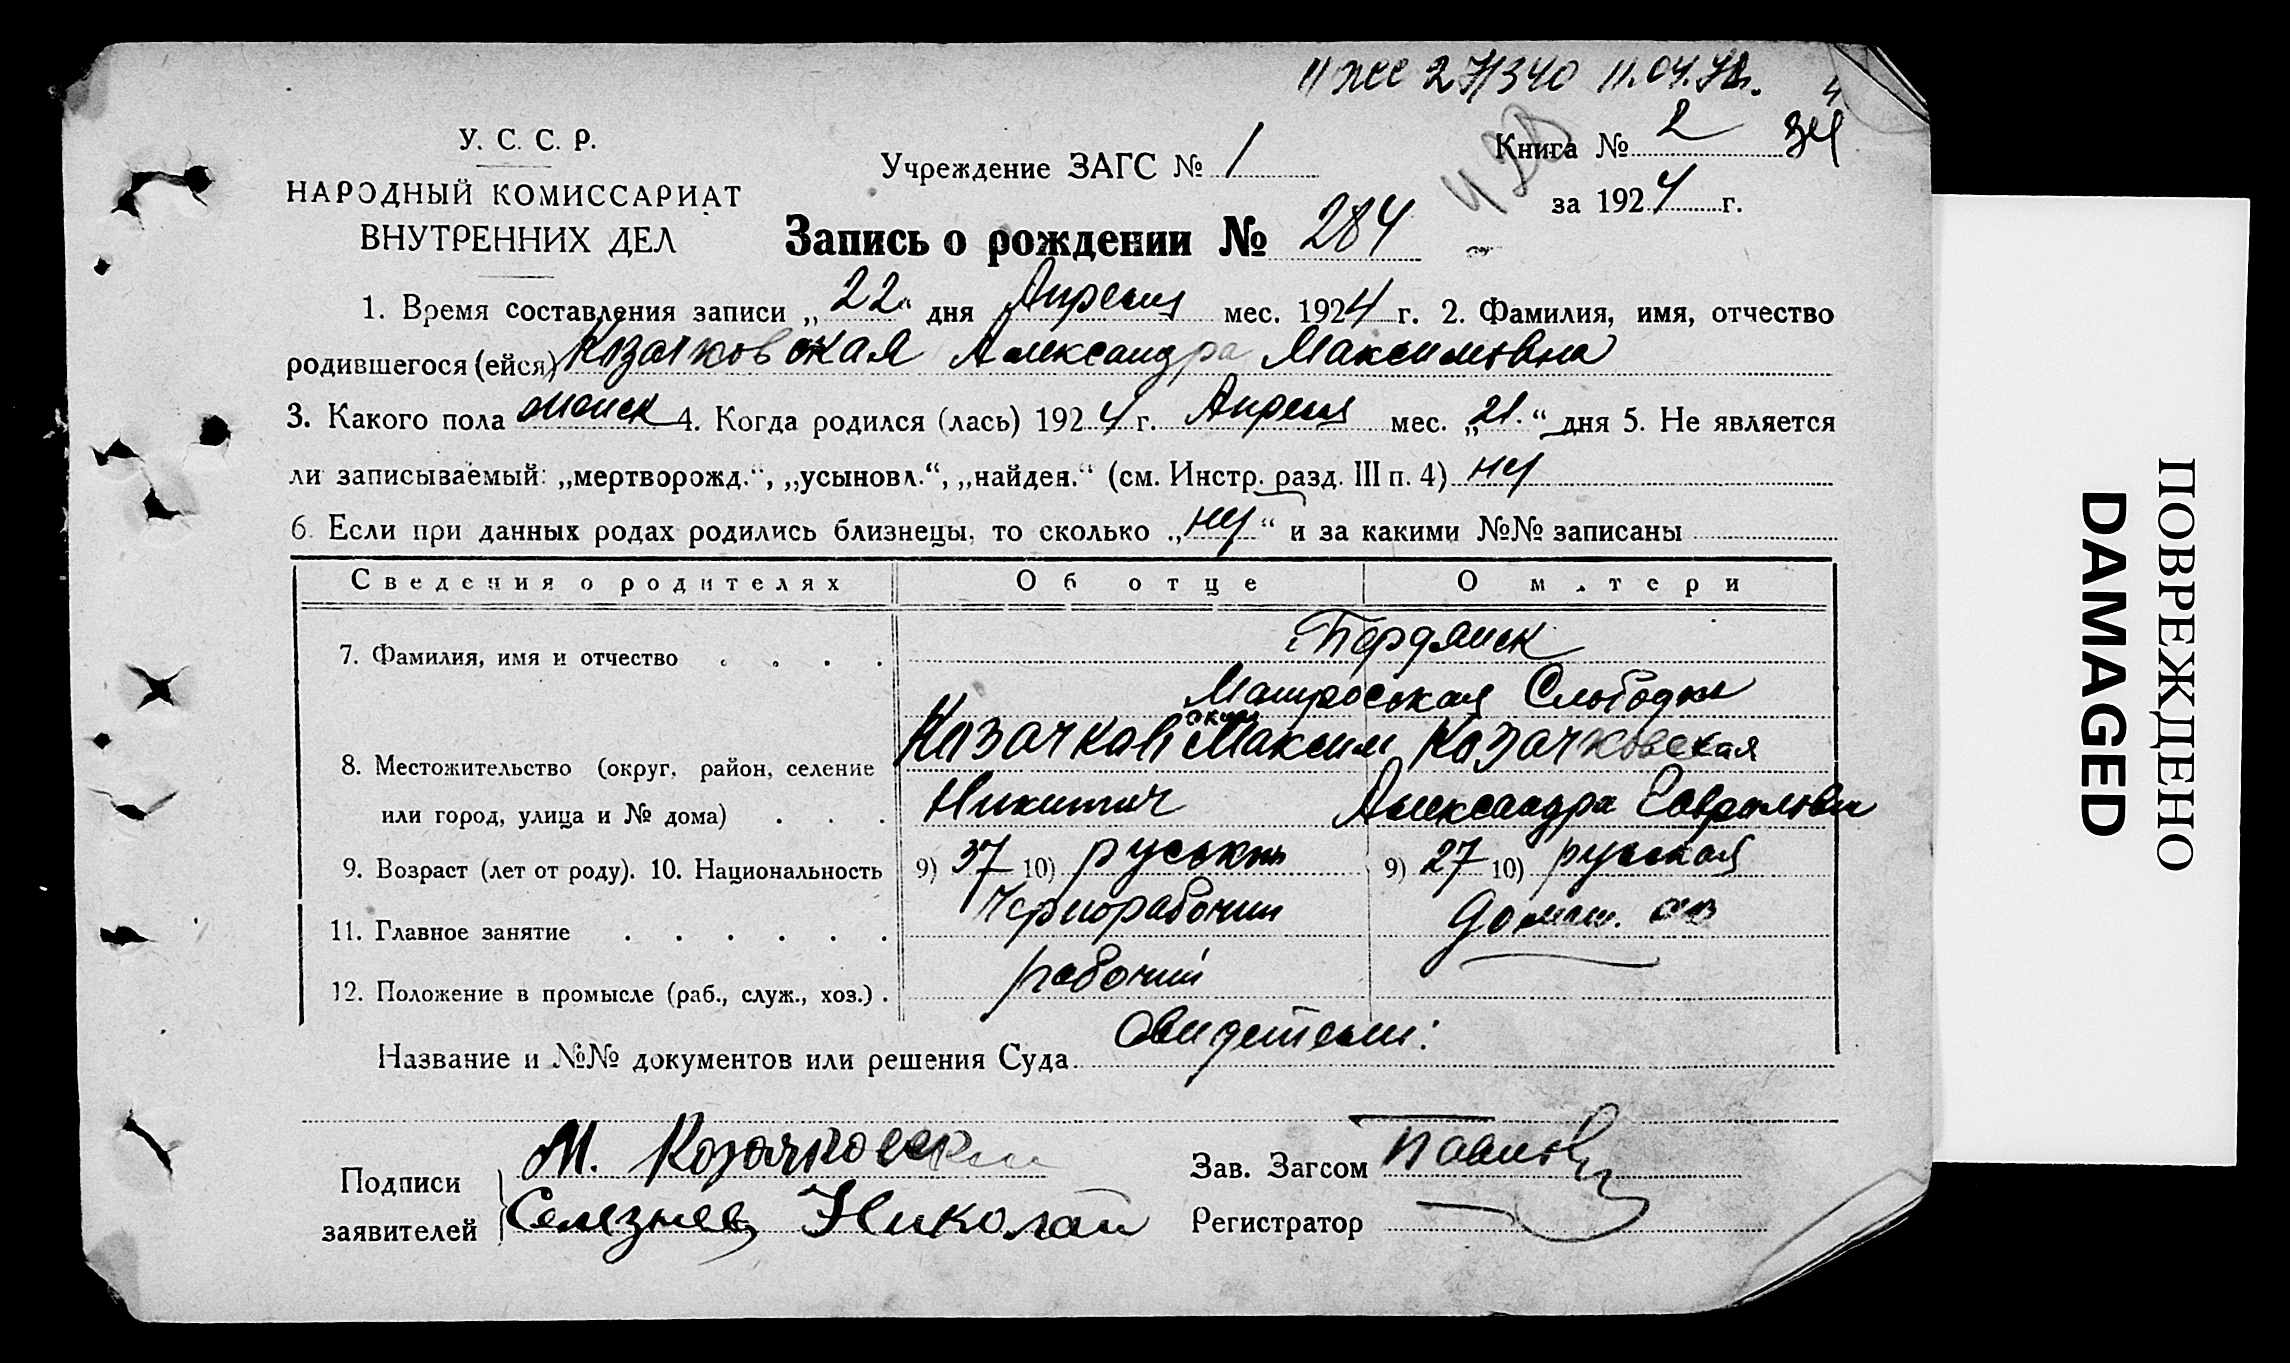 11 ЖС 271340 11.04.72.
У. С. С. Р.
НАРОДНЫЙ КОМИССАРИАТ
ВНУТРЕННИХ ДЕЛ
Учреждение ЗАГС № 1
Книга № 2 34
за 1924 г.
Запись о рождении № 284
1. Время составления записи „22“ дня Апреля мес. 1924 г. 2. Фамилия, имя, отчество
родившегося (ейся) Казачковская Александра Максимовна
3. Какого пола женск 4. Когда родился (лась) 1924 г. Апреля мес. „21.“ дня 5. Не является
ли записываемый: „мертворожд.“, „усыновл.“, „найден.“ (см. Инстр. разд. III п. 4) нет
6. Если при данных родах родились близнецы, то сколько „нет“ и за какими №№ записаны
Сведения о родителях Об отце О матери
7. Фамилия, имя и отчество . . . . Бердянск
Матросская Слободка
Казачковский Максим Казачковская
8. Местожительство (округ, район, селение
или город, улица и № дома) . . . Никитич Александра
9. Возраст (лет от роду). 10. Национальность 9) 37 10) русский 9) 27 10) русская
11. Главное занятие . . . . . . Чернорабочий домаш. хоз
12. Положение в промысле (раб., служ., хоз.) . рабочий
Название и №№ документов или решения Суда Свидетели:
Подписи заявителей М. Козачковский
Селезнев Николай
Зав. Загсом Павлов
Регистратор
ПОВРЕЖДЕНО
DAMAGED